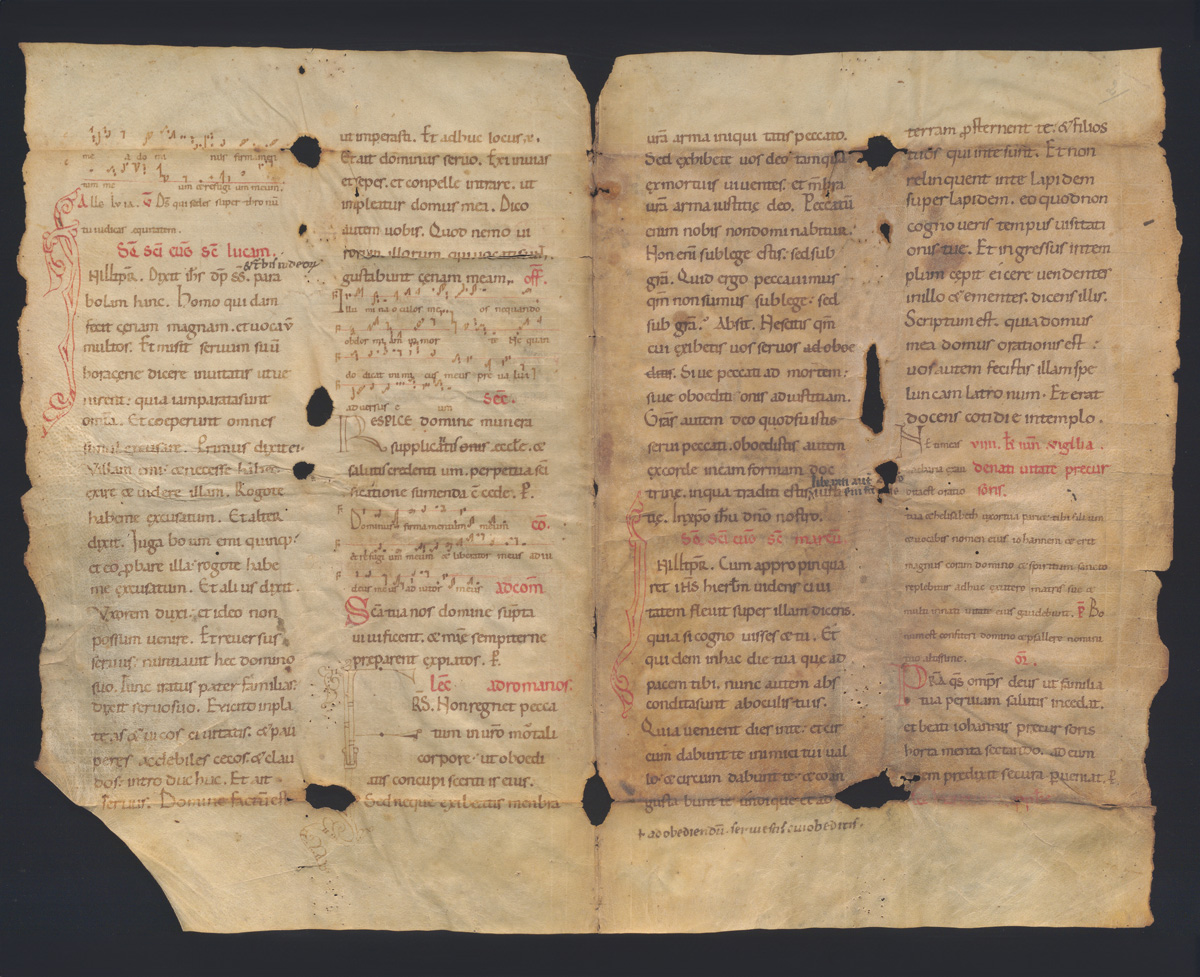 me a do mi nus firmamen
tum me um & refugi um meum.
Alle lu ia. V D̄s qui sedes super thronū
tu iudicas equitatem.
Sc̄i euḡ sc̄ lucam.
In ill tp̄r. Dixit ih̄s para
bolam hanc. Homo quidam
fecit cenam magnam. et uocaū
multos. Et misit seruum suū
hora cene dicere inuitatis ut ue
nirent: quia iam parata sunt
omīa. Et coeperunt omnes
simul excusare. Primus dixit ei.
Villam emi & necesse habeo
exire & uidere illam. Rogo te
habe me excusatum. Et alter
dixit. Iuga boum emi quinq;
et eo ꝓbare illa. rogo te habe
me excusatum. Et alius dixit.
Vxorem duxi. et ideo non
possum uenire. Et reuersus
seruus. nuntiauit hec domino
suo. Tunc iratus pater familias.
dixit seruo suo. Exi cito in pla
teas & uicos ciuitatis. & pau
peres ac debiles cecos. & clau
dos. introduc huc. Et ait
seruus. Domine factū est
ut imperasti. Et adhuc locus ē.
Et ait dominus seruo. Exi in uias
et sepes. et conpelle intrare. ut
impleatur domus mea. Dico
autem uobis. Quod nemo ui
rorum illorum qui uocati sunt
gustabunt cenam meam. off̄.
Illu mi na oculos me os nequando
obdor mi am in mor te Ne quan
do dicat inimi cus meus pre ua lui
aduersus e um
Sēc.
Respice domine munera
supplicantis eccl̄e. &
saluti credenti um. perpetua sc̄i
ficatione sumenda c̄cede. P.
Dominus firmamentum meum cō.
& refugi um meum & liberator meus
deus meus ad iutor meus adcom̄
Sc̄a tua nos domine sūpta
uiuificent. & mīe sempiterne
preparent expiatos. P.
lec̄ ad romanos.
FR̄S. Non regnet pecca
tum in uro mortali
corpore. ut oboedi
atis concupiscentiis eius.
Sed neque exibeatis menbra
urā arma iniquitatis peccato.
Sed exhibete uos deo tamquā
ex mortuis uiuentes. et mbra
urā arma iustitię deo. Peccatū
enim uobis non dominabitur.
Non enī sub lege estis. sed sub
gr̄a. Quid ergo peccauimus
qm̄ non sumus sub lege. sed
sub gr̄a. Absit. Nescitis qm̄
cui exibetis uos seruos ad oboe
diēn. Siue peccati ad mortem:
siue oboeditionis ad iustitiam.
Gr̄as autem deo quod fuistis
serui peccati. oboedistis autem
ex corde in eam formam doc
trine. in qua traditi estis.
tie. In xp̄o ih̄u dn̄o nostro.
Sc̄i euḡ sc̄ marcū
In ill tp̄r. Cum appropinqua
ret ih̄s hierl̄m uidens ciui
tatem fleuit super illam dicens.
quia si cognouisses & tu. Et
quidem in hac die tua que ad
pacem tibi. nunc autem abs
condita sunt ab oculis tuis.
Quia uenient dies in te. et cir
cum dabunt te inimici tui ual
lo. & circum dabunt te. & coan
gustabunt te undique et ad
+ ad obediendū. serui estis cui obeditis.
terram ꝓsternent te. & filios
tuos qui in te sunt. Et non
relinquent in te lapidem
super lapidem. eo quod non
cognoueris tempus uisitati
onis tue. Et ingressus in tem
plum cepit eicere uendentes
in illo & ementes. dicens illis.
Scriptum est. quia domus
mea domus orationis est:
uos autem fecistis illam spe
luncam latronum. Et erat
docens cotidie in templo.
Ne timeas VIIII. kł iuł. Vigilia
zacharia exau de nati uitate precur
dita est oratio soris.
tua & helisabeth uxor tua pariet tibi filium
& uocabis nomen eius iohannem. & erit
magnus coram domino & spiritum sancto
replebitur adhuc ex utero matris sue &
multi in nati uitate eius gaudebunt. P Bo
num est confiteri domino & psallere nomini
tuo altissime. OR.
Pr̄a q̄s omp̄s deus ut familia
tua per uiam salutis incedat.
et beati iohannis precursoris
hortamenta sectando. ad eum
quem predixit secura ꝑueniat. P